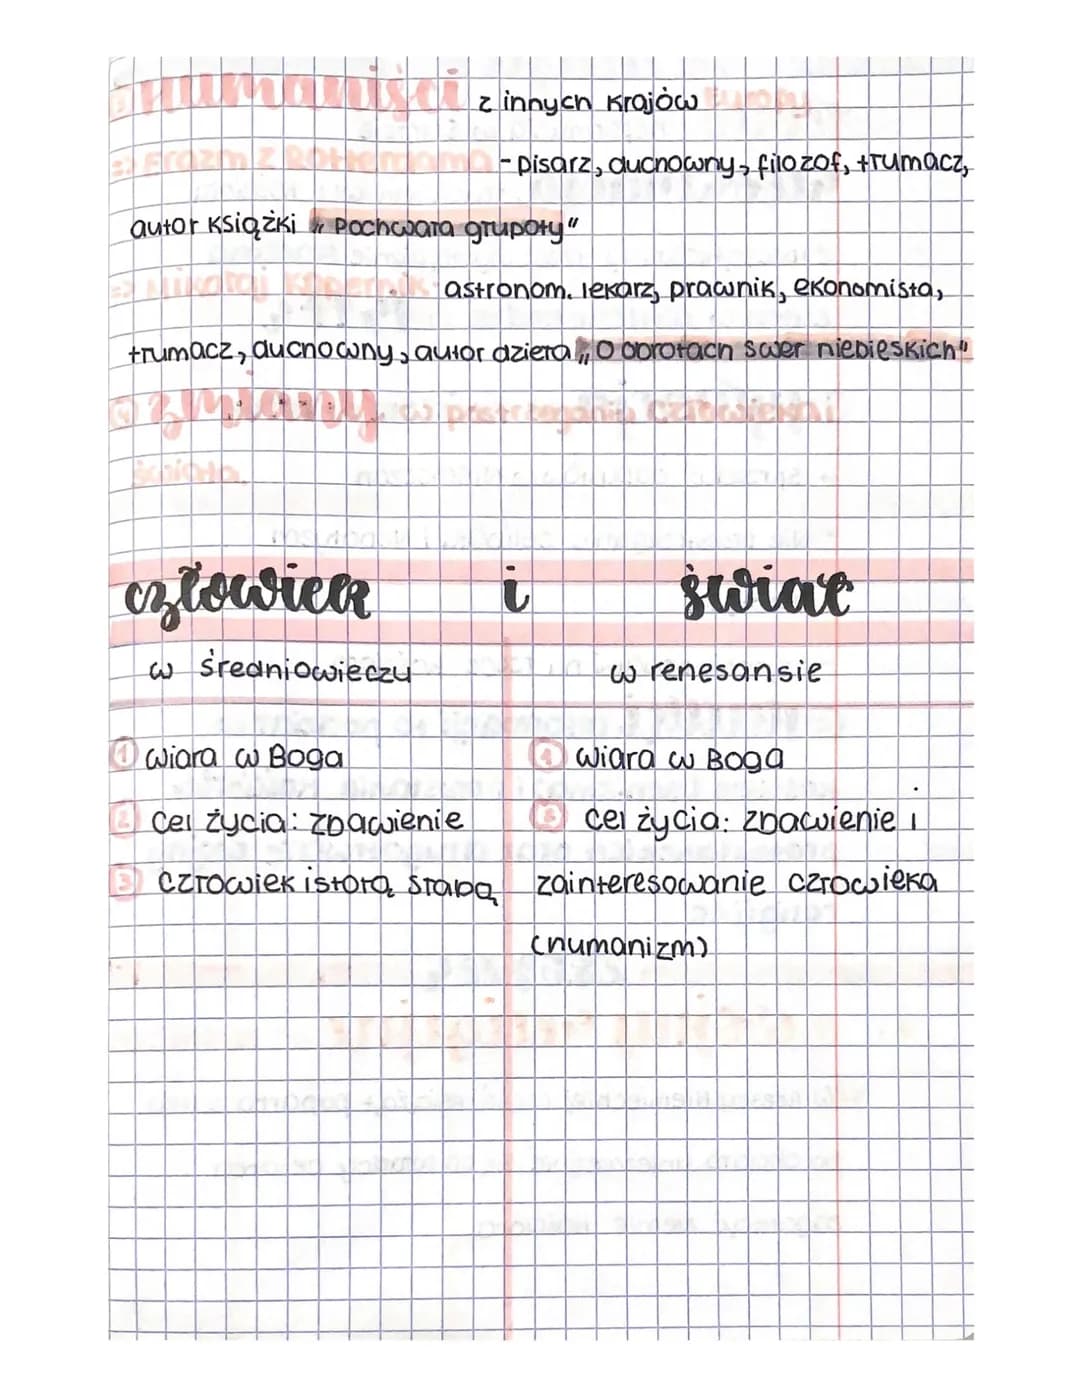 humaniści z innych krajów Europy
=> Erazm z Rotterdamu - pisarz, duchowny, filozof, tłumacz,
autor książki „Pochwała głupoty"
=> Mikołaj Kopernik astronom. lekarz, prawnik, ekonomista,
tłumacz, duchowny, autor dzieła „O obrotach swer niebieskich"
4 zmiany w postrzeganiu człowieka i
świata.
człowiek i świat
w średniowieczu w renesansie
1 wiara w Boga 1 wiara w Boga
2 cel życia: zbawienie cel życia: zbawienie i
3 człowiek istotą słabą zainteresowanie człowieka
(humanizm)